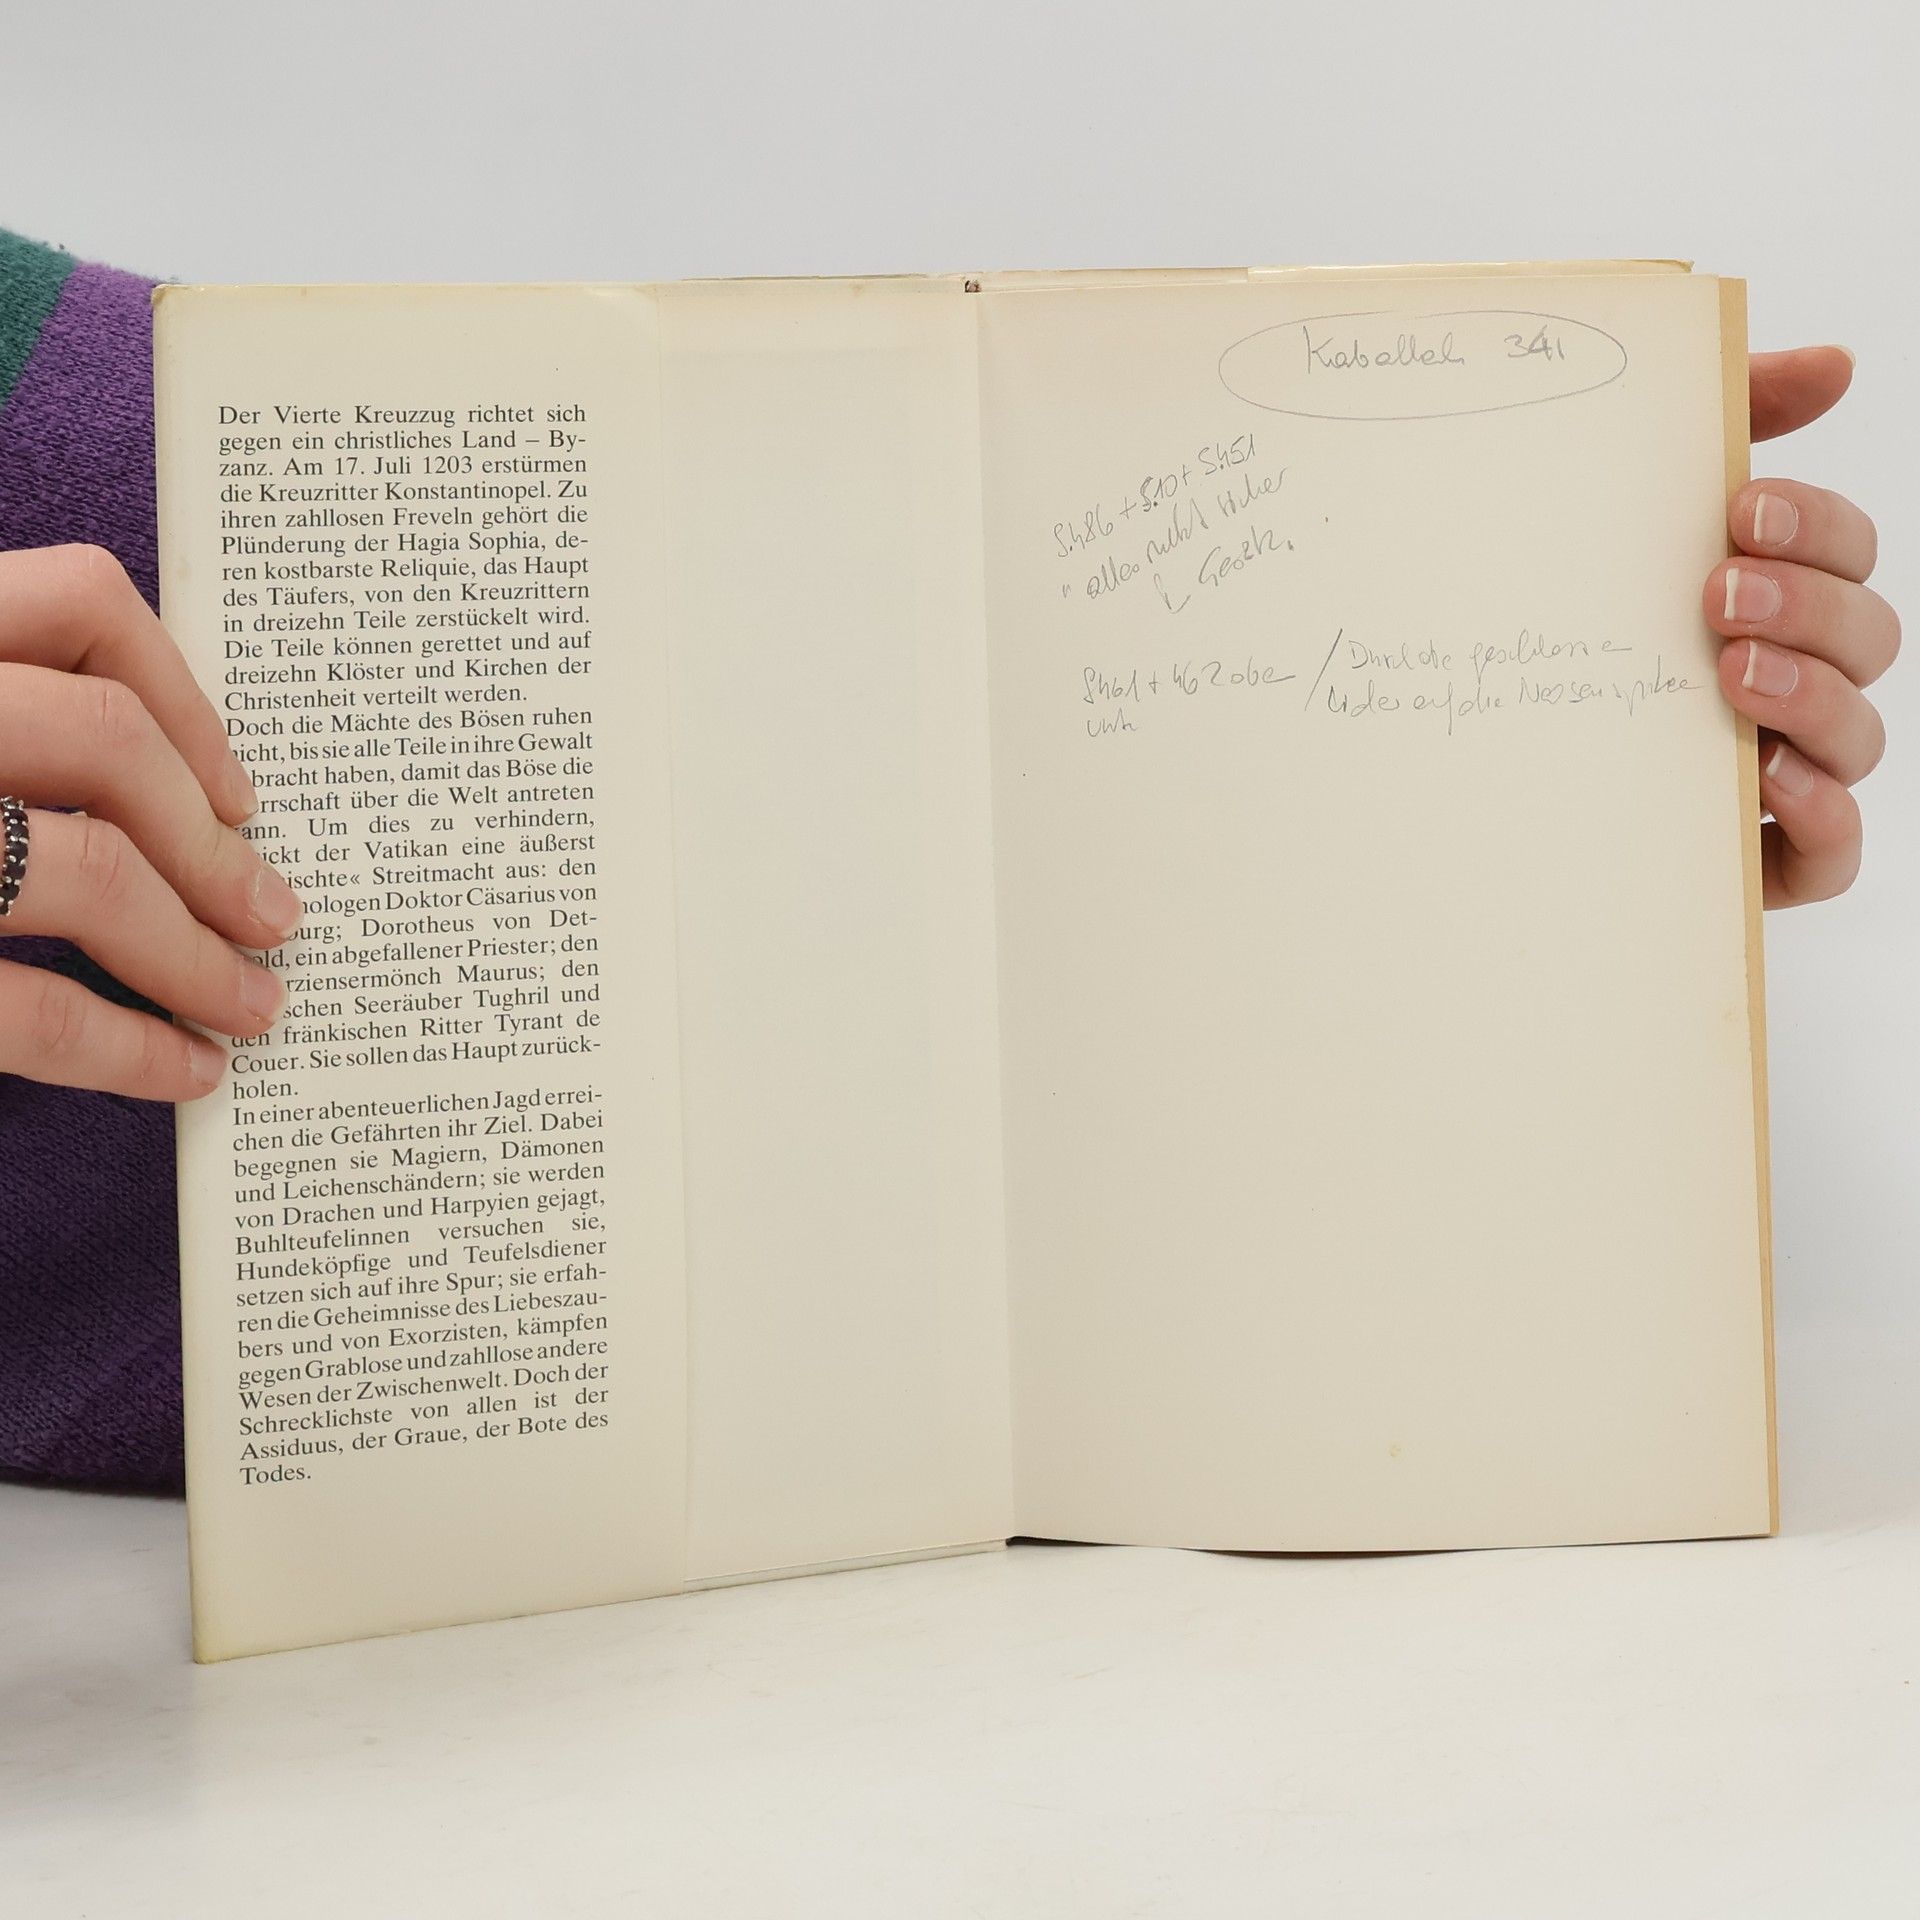 Der Vierte Kreuzzug richtet sich
gegen ein christliches Land – By-
zanz. Am 17. Juli 1203 erstürmen
die Kreuzritter Konstantinopel. Zu
ihren zahllosen Freveln gehört die
Plünderung der Hagia Sophia, de-
ren kostbarste Reliquie, das Haupt
des Täufers, von den Kreuzrittern
in dreizehn Teile zerstückelt wird.
Die Teile können gerettet und auf
dreizehn Klöster und Kirchen der
Christenheit verteilt werden.
Doch die Mächte des Bösen ruhen
icht, bis sie alle Teile in ihre Gewalt
bracht haben, damit das Böse die
rrschaft über die Welt antreten
ann. Um dies zu verhindern,
ickt der Vatikan eine äußerst
ischte« Streitmacht aus: den
nologen Doktor Cäsarius von
burg; Dorotheus von Det-
old, ein abgefallener Priester; den
rziensermönch Maurus; den
schen Seeräuber Tughril und
den fränkischen Ritter Tyrant de
Couer. Sie sollen das Haupt zurück-
holen.
In einer abenteuerlichen Jagd errei-
chen die Gefährten ihr Ziel. Dabei
begegnen sie Magiern, Dämonen
und Leichenschändern; sie werden
von Drachen und Harpyien gejagt,
Buhlteufelinnen versuchen sie,
Hundeköpfige und Teufelsdiener
setzen sich auf ihre Spur; sie erfah-
ren die Geheimnisse des Liebeszau-
bers und von Exorzisten, kämpfen
gegen Grablose und zahllose andere
Wesen der Zwischenwelt. Doch der
Schrecklichste von allen ist der
Assiduus, der Graue, der Bote des
Todes.
Kaballah 341
S.486 + S.10 + S.451
" alles
Gesetz.
S461 + 462 obe / Durch die geschlossene
unt Lider auf die Nasenspitze